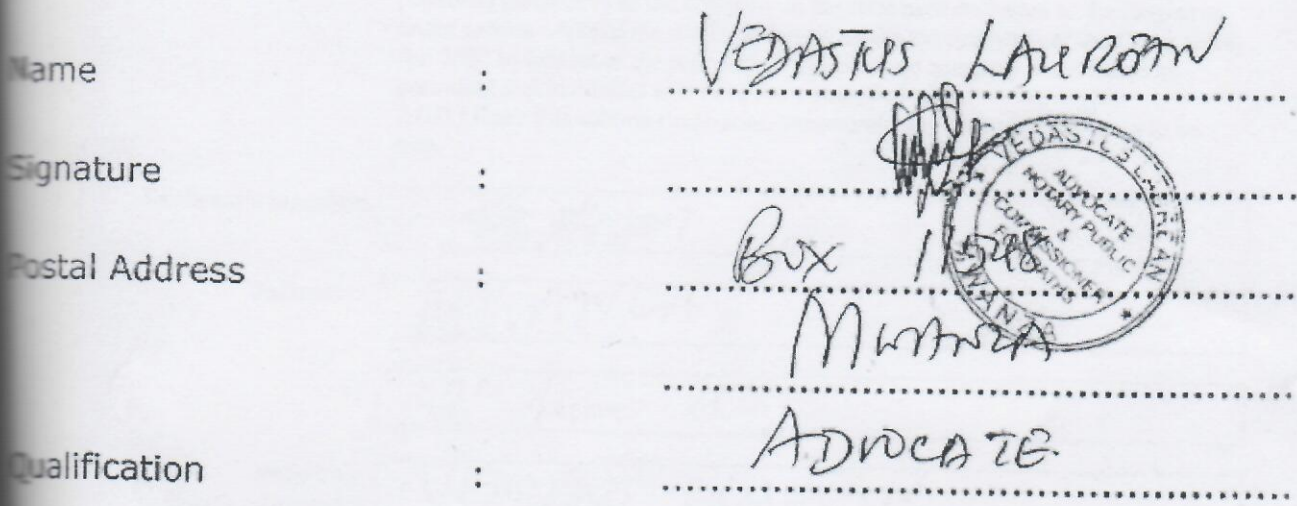 Name : VEDASTUS LAUREAN
Signature :
VEDASTUS LAUREAN
ADVOCATE
NOTARY PUBLIC
&
COMMISSIONER
FOR OATHS
* MWANZA *
Postal Address : Box
MWANZA
Qualification : ADVOCATE